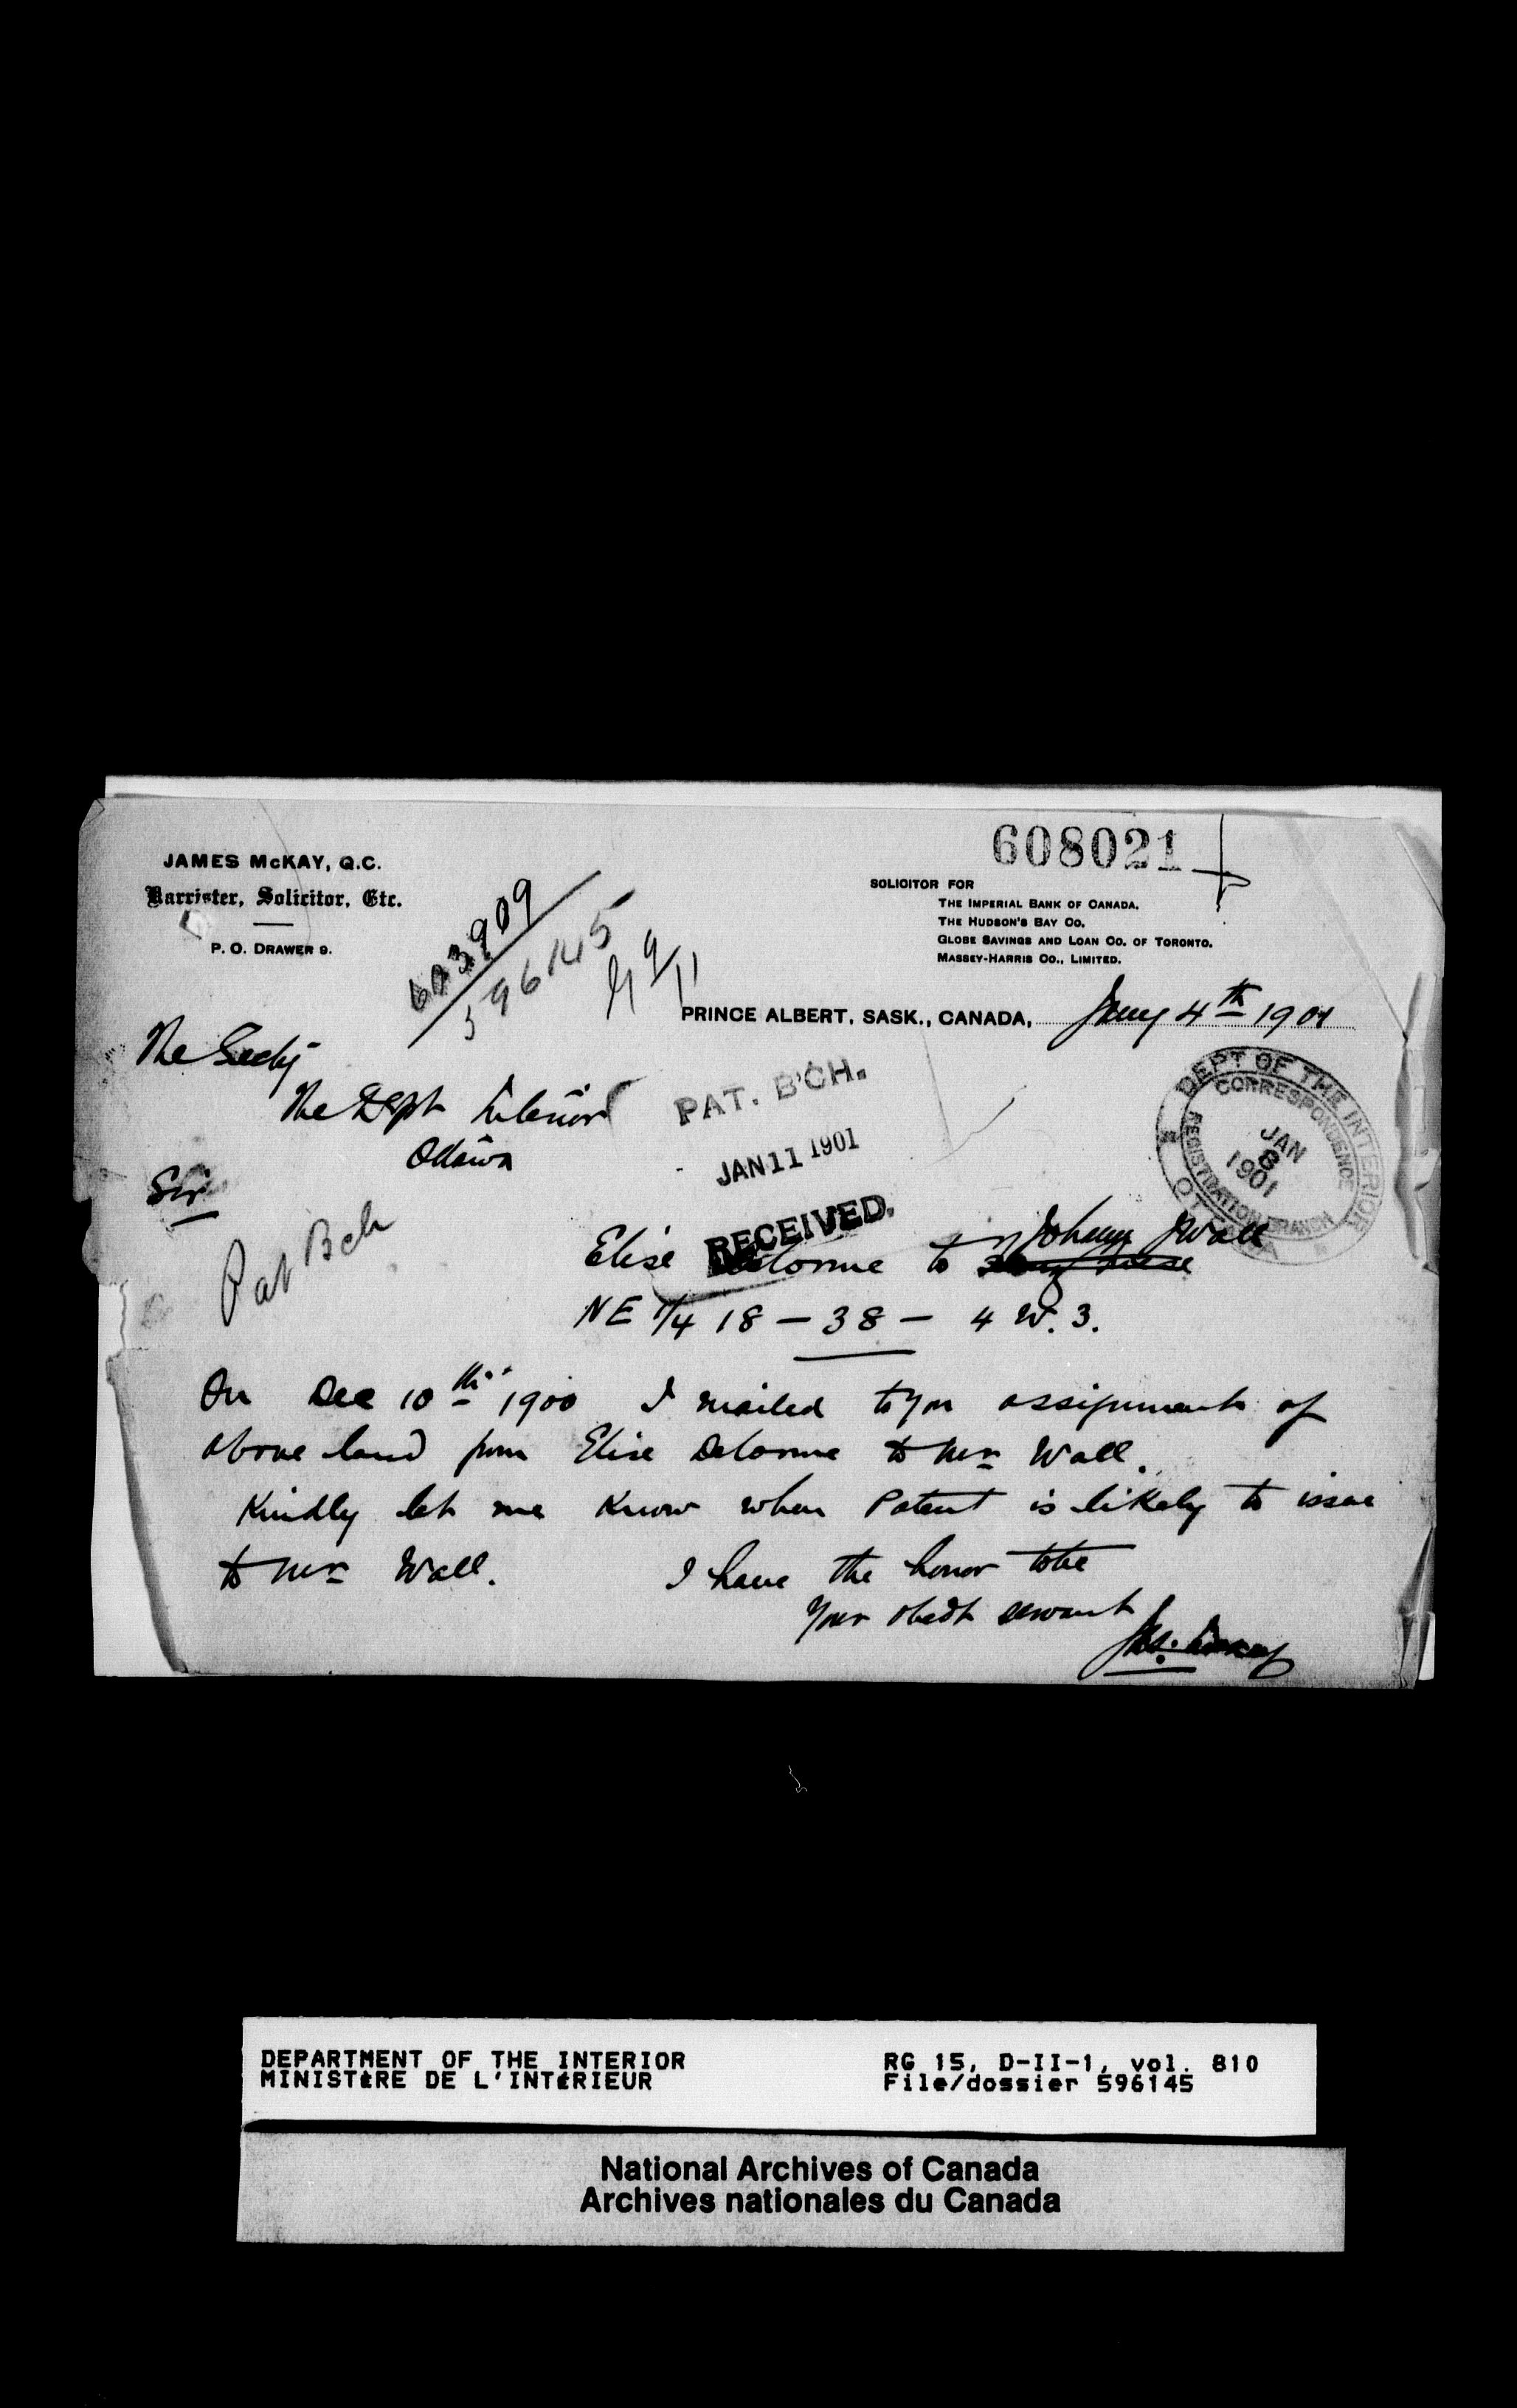 608021
JAMES McKAY, Q.C.
Barrister, Solicitor, Etc.
P. O. DRAWER 9.
SOLICITOR FOR
THE IMPERIAL BANK OF CANADA.
THE HUDSON'S BAY CO.
GLOBE SAVINGS AND LOAN CO. OF TORONTO.
MASSEY-HARRIS CO., LIMITED.
603909
596145
PRINCE ALBERT, SASK., CANADA, Jany 4th 1901
The Secty
The Dept Interior
Ottawa
PAT. B'CH.
JAN 11 1901
RECEIVED.
DEPT OF THE INTERIOR
CORRESPONDENCE
JAN 8 1901
REGISTRATION BRANCH
OTTAWA
Sir
Pat Bch
Elise Delorme to Johann J Wall
NE 1/4 18 - 38 - 4 W. 3.
On Dec 10th 1900 I mailed to you assignment of
above land from Elise Delorme to Mr Wall.
Kindly let me know when Patent is likely to issue
to Mr Wall. I have the honor to be
Your obedt servant
Jas. McKay
DEPARTMENT OF THE INTERIOR
MINISTÈRE DE L'INTÉRIEUR
RG 15, D-II-1, vol. 810
File/dossier 596145
National Archives of Canada
Archives nationales du Canada